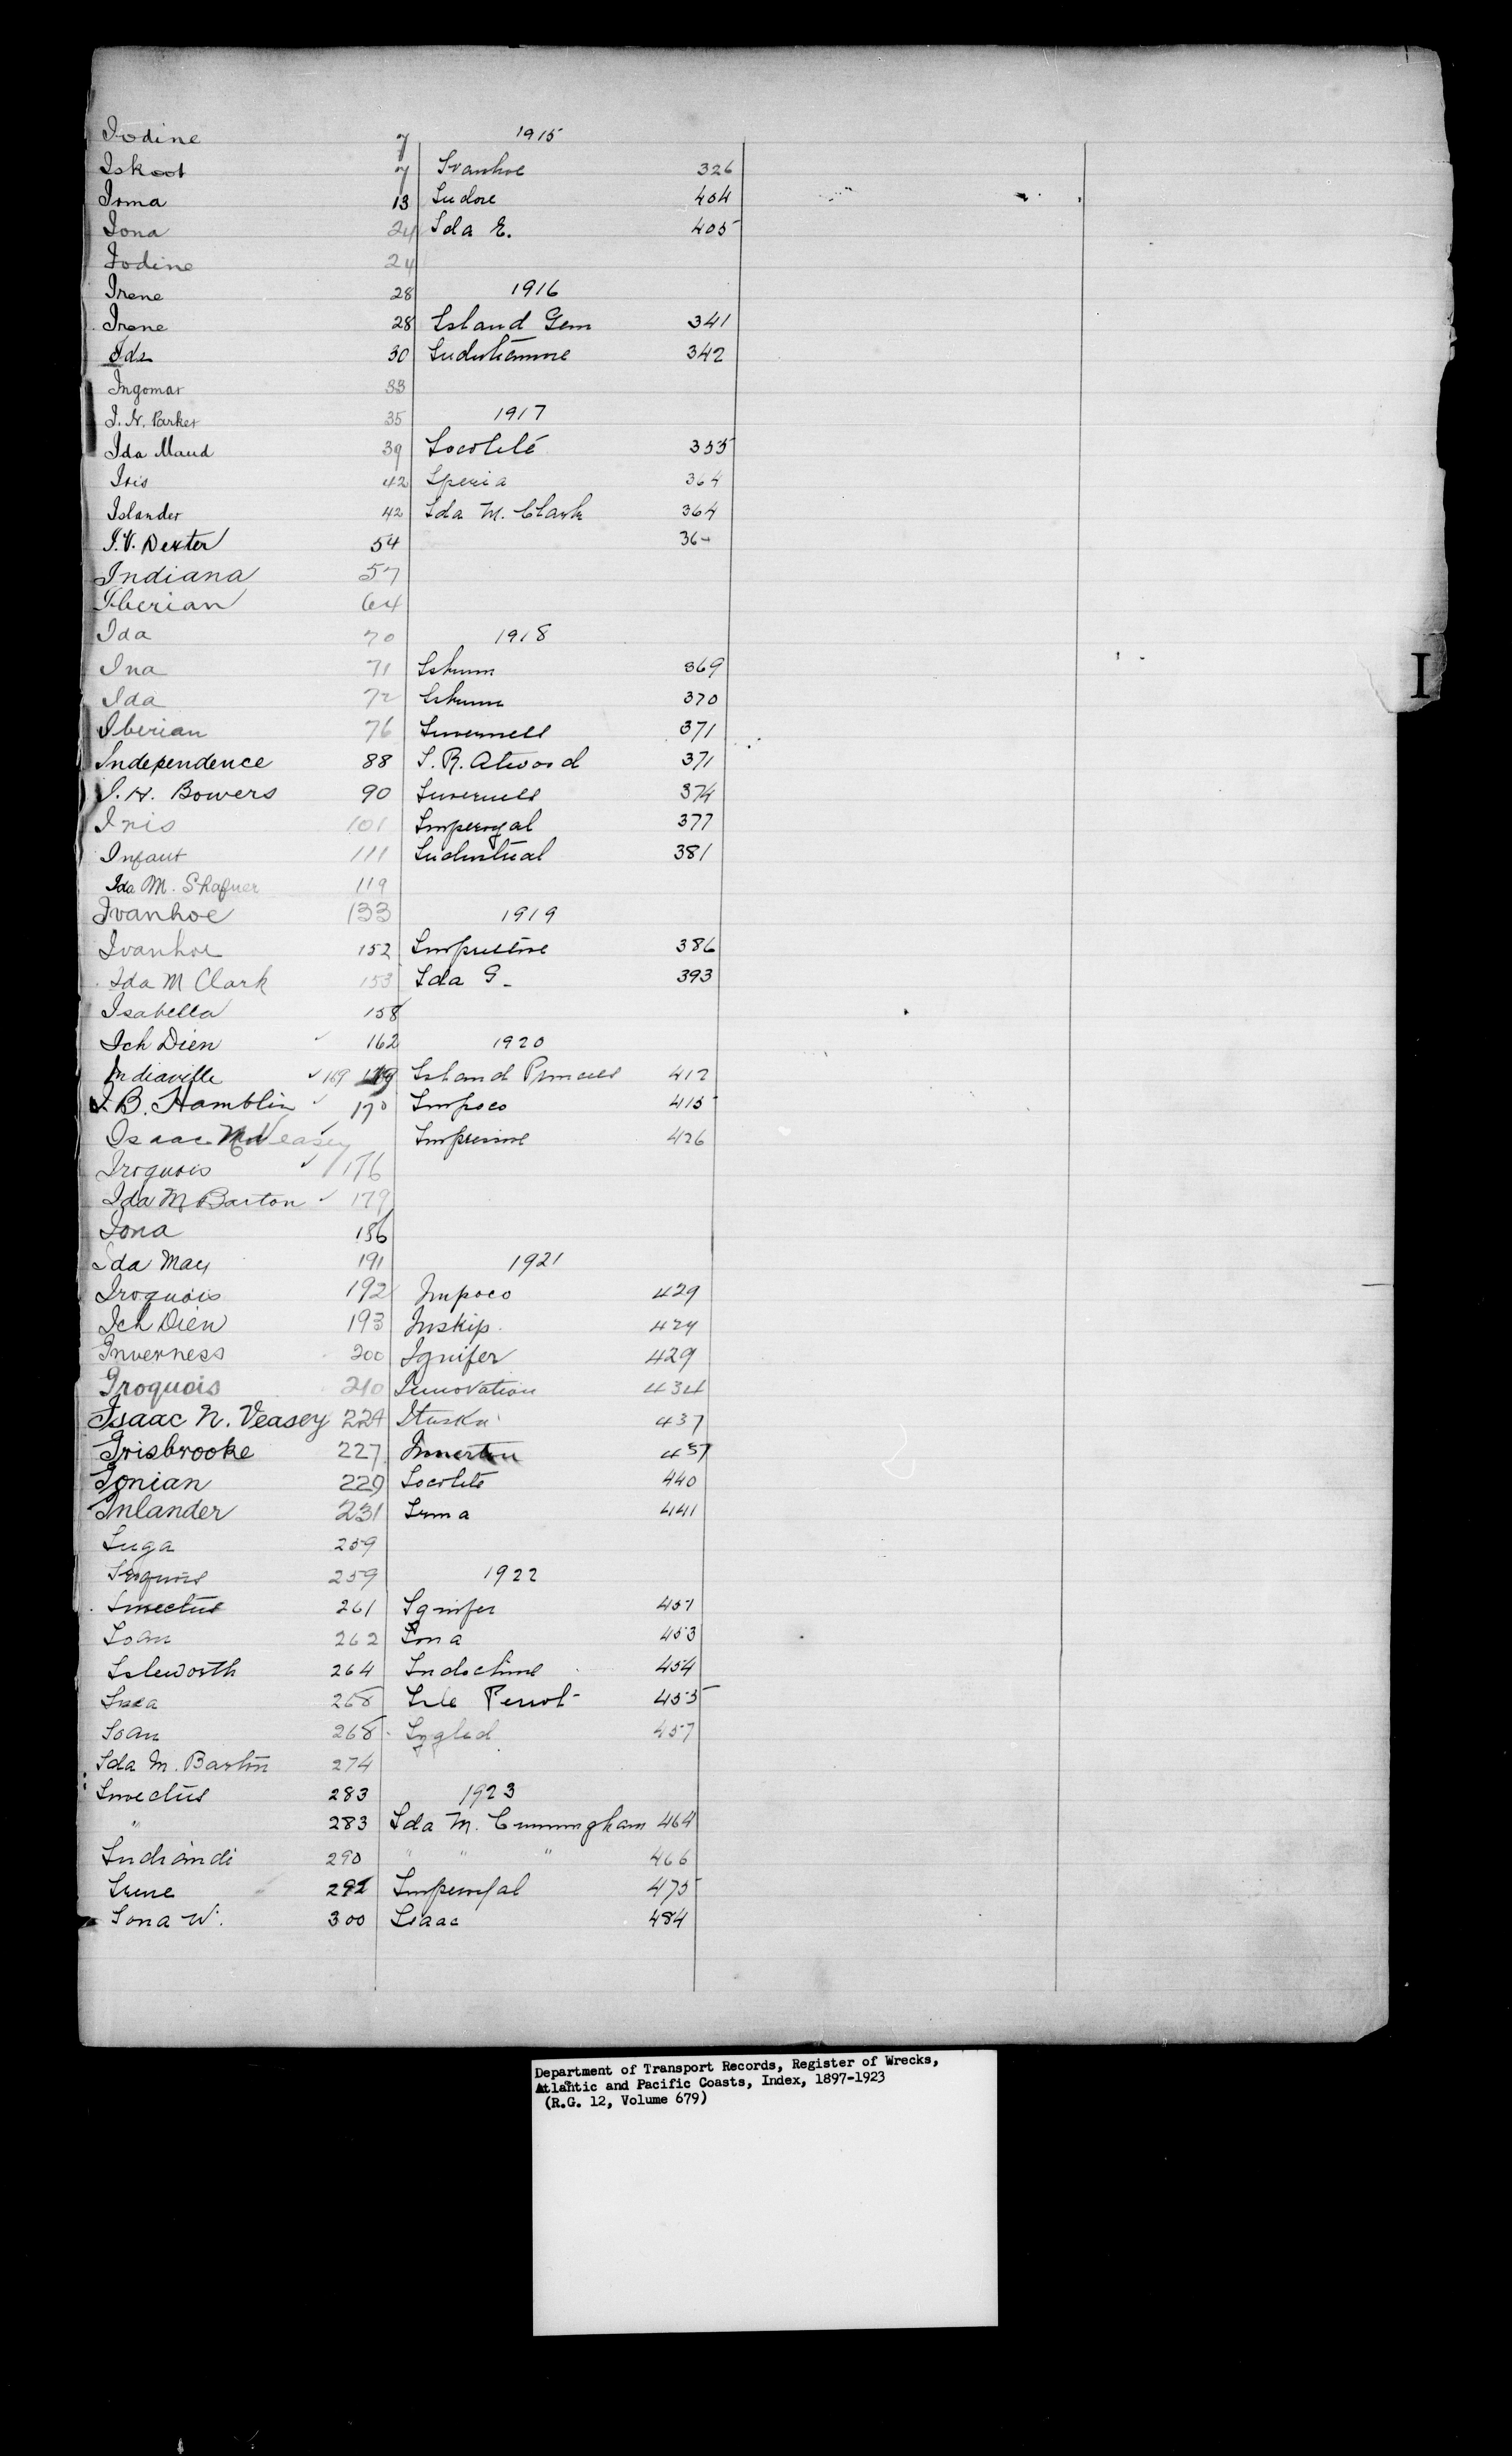 Iodine 7
Iskoot 7
Irma 13
Iona 24
Iodine 24
Irene 28
Irene 28
Ida 30
Ingomar 33
I. N. Parker 35
Ida Maud 39
Iris 42
Islander 42
I. V. Dexter 54
Indiana 57
Iberian 64
Ida 70
Ina 71
Ida 72
Iberian 76
Independence 88
I. H. Bowers 90
Iris 101
Infant 111
Ida M. Shafner 119
Ivanhoe 133
Ivanhoe 152
Ida M Clark 153
Isabella 158
Ich Dien 162
Indiaville 169
I. B. Hamblin 170
Isaac N Veasey
Iroquois 176
Ida M Barton 179
Iona 186
Ida May 191
Iroquois 192
Ich Dien 193
Inverness 200
Iroquois 210
Isaac N. Veasey 224
Irisbrooke 227
Ionian 229
Inlander 231
Inga 259
Iroquois 259
Invectus 261
Ioan 262
Isleworth 264
268
Ioan 268
Ida M. Barton 274
Invectus 283
" 283
Indrandi 290
Irene 292
Iona W. 300
1915
Ivanhoe 326
404
Ida E. 405
1916
Island Gem 341
342
1917
Iocolité 355
Iperia 364
Ida M. Clark 364
36
1918
Iskum 369
Iskum 370
Inverness 371
I. R. Atwood 371
Inverness 374
Imperoyal 377
Industrial 381
1919
386
Ida G. 393
1920
Island Princess 412
Impoco 415
426
1921
Impoco 429
Inskip 429
Ignifer 429
Innovation 434
Ituska 437
Innerton 437
Iocolite 440
Irma 441
1922
Ignifer 451
453
Indochine 454
Isle Perrot 455
457
1923
Ida M. Cunningham 464
" " " 466
Imperoyal 475
Isaac 484
I
Department of Transport Records, Register of Wrecks,
Atlantic and Pacific Coasts, Index, 1897-1923
(R.G. 12, Volume 679)